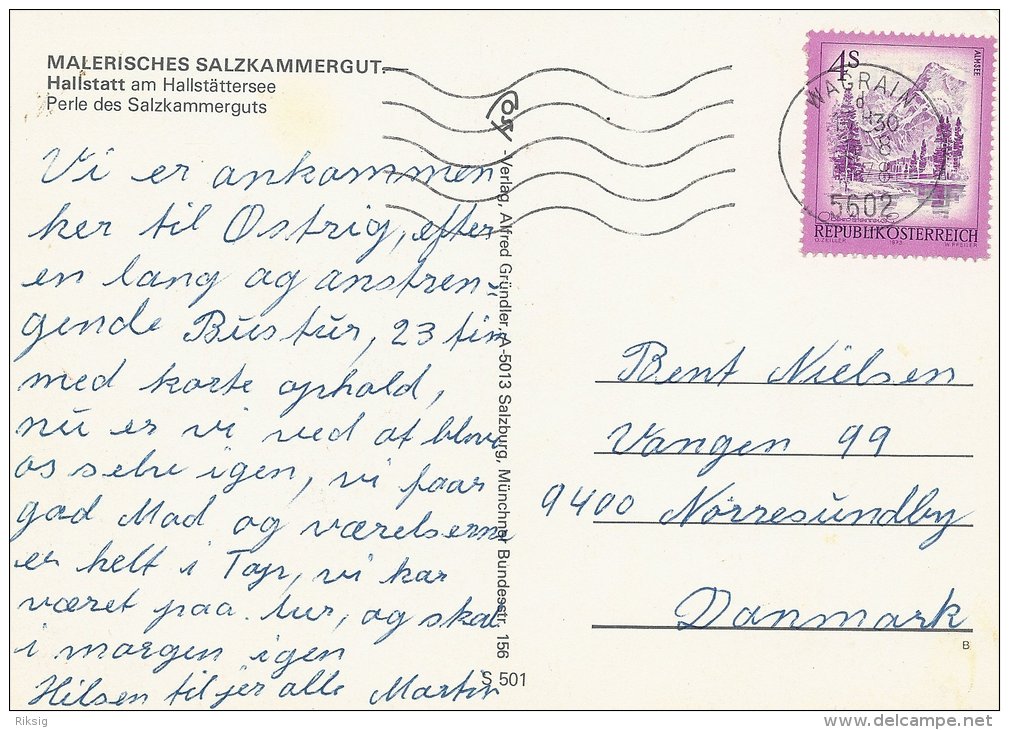 MALERISCHES SALZKAMMERGUT
Hallstatt am Hallstättersee
Perle des Salzkammerguts
Vi er ankommen
her til Østrig, efter
en lang og anstren-
gende Bustur, 23 tim
med korte ophold,
nu er vi ved at blive
os selv igen, vi faar
god Mad og værelserne
er helt i Top, vi har
været paa tur, og skal
i morgen igen
Hilsen til jer alle Martin
-Verlag, Alfred Gründler, A-5013 Salzburg, Münchner Bundesstr. 156
S 501
4S
ALMSEE
WAGRAIN
5602
REPUBLIK ÖSTERREICH
O. ZEILLER 1973 W. PFEILER
Bent Nielsen
Vangen 99
9400 Nørresundby
Danmark
B
Riksig
delcampe.net